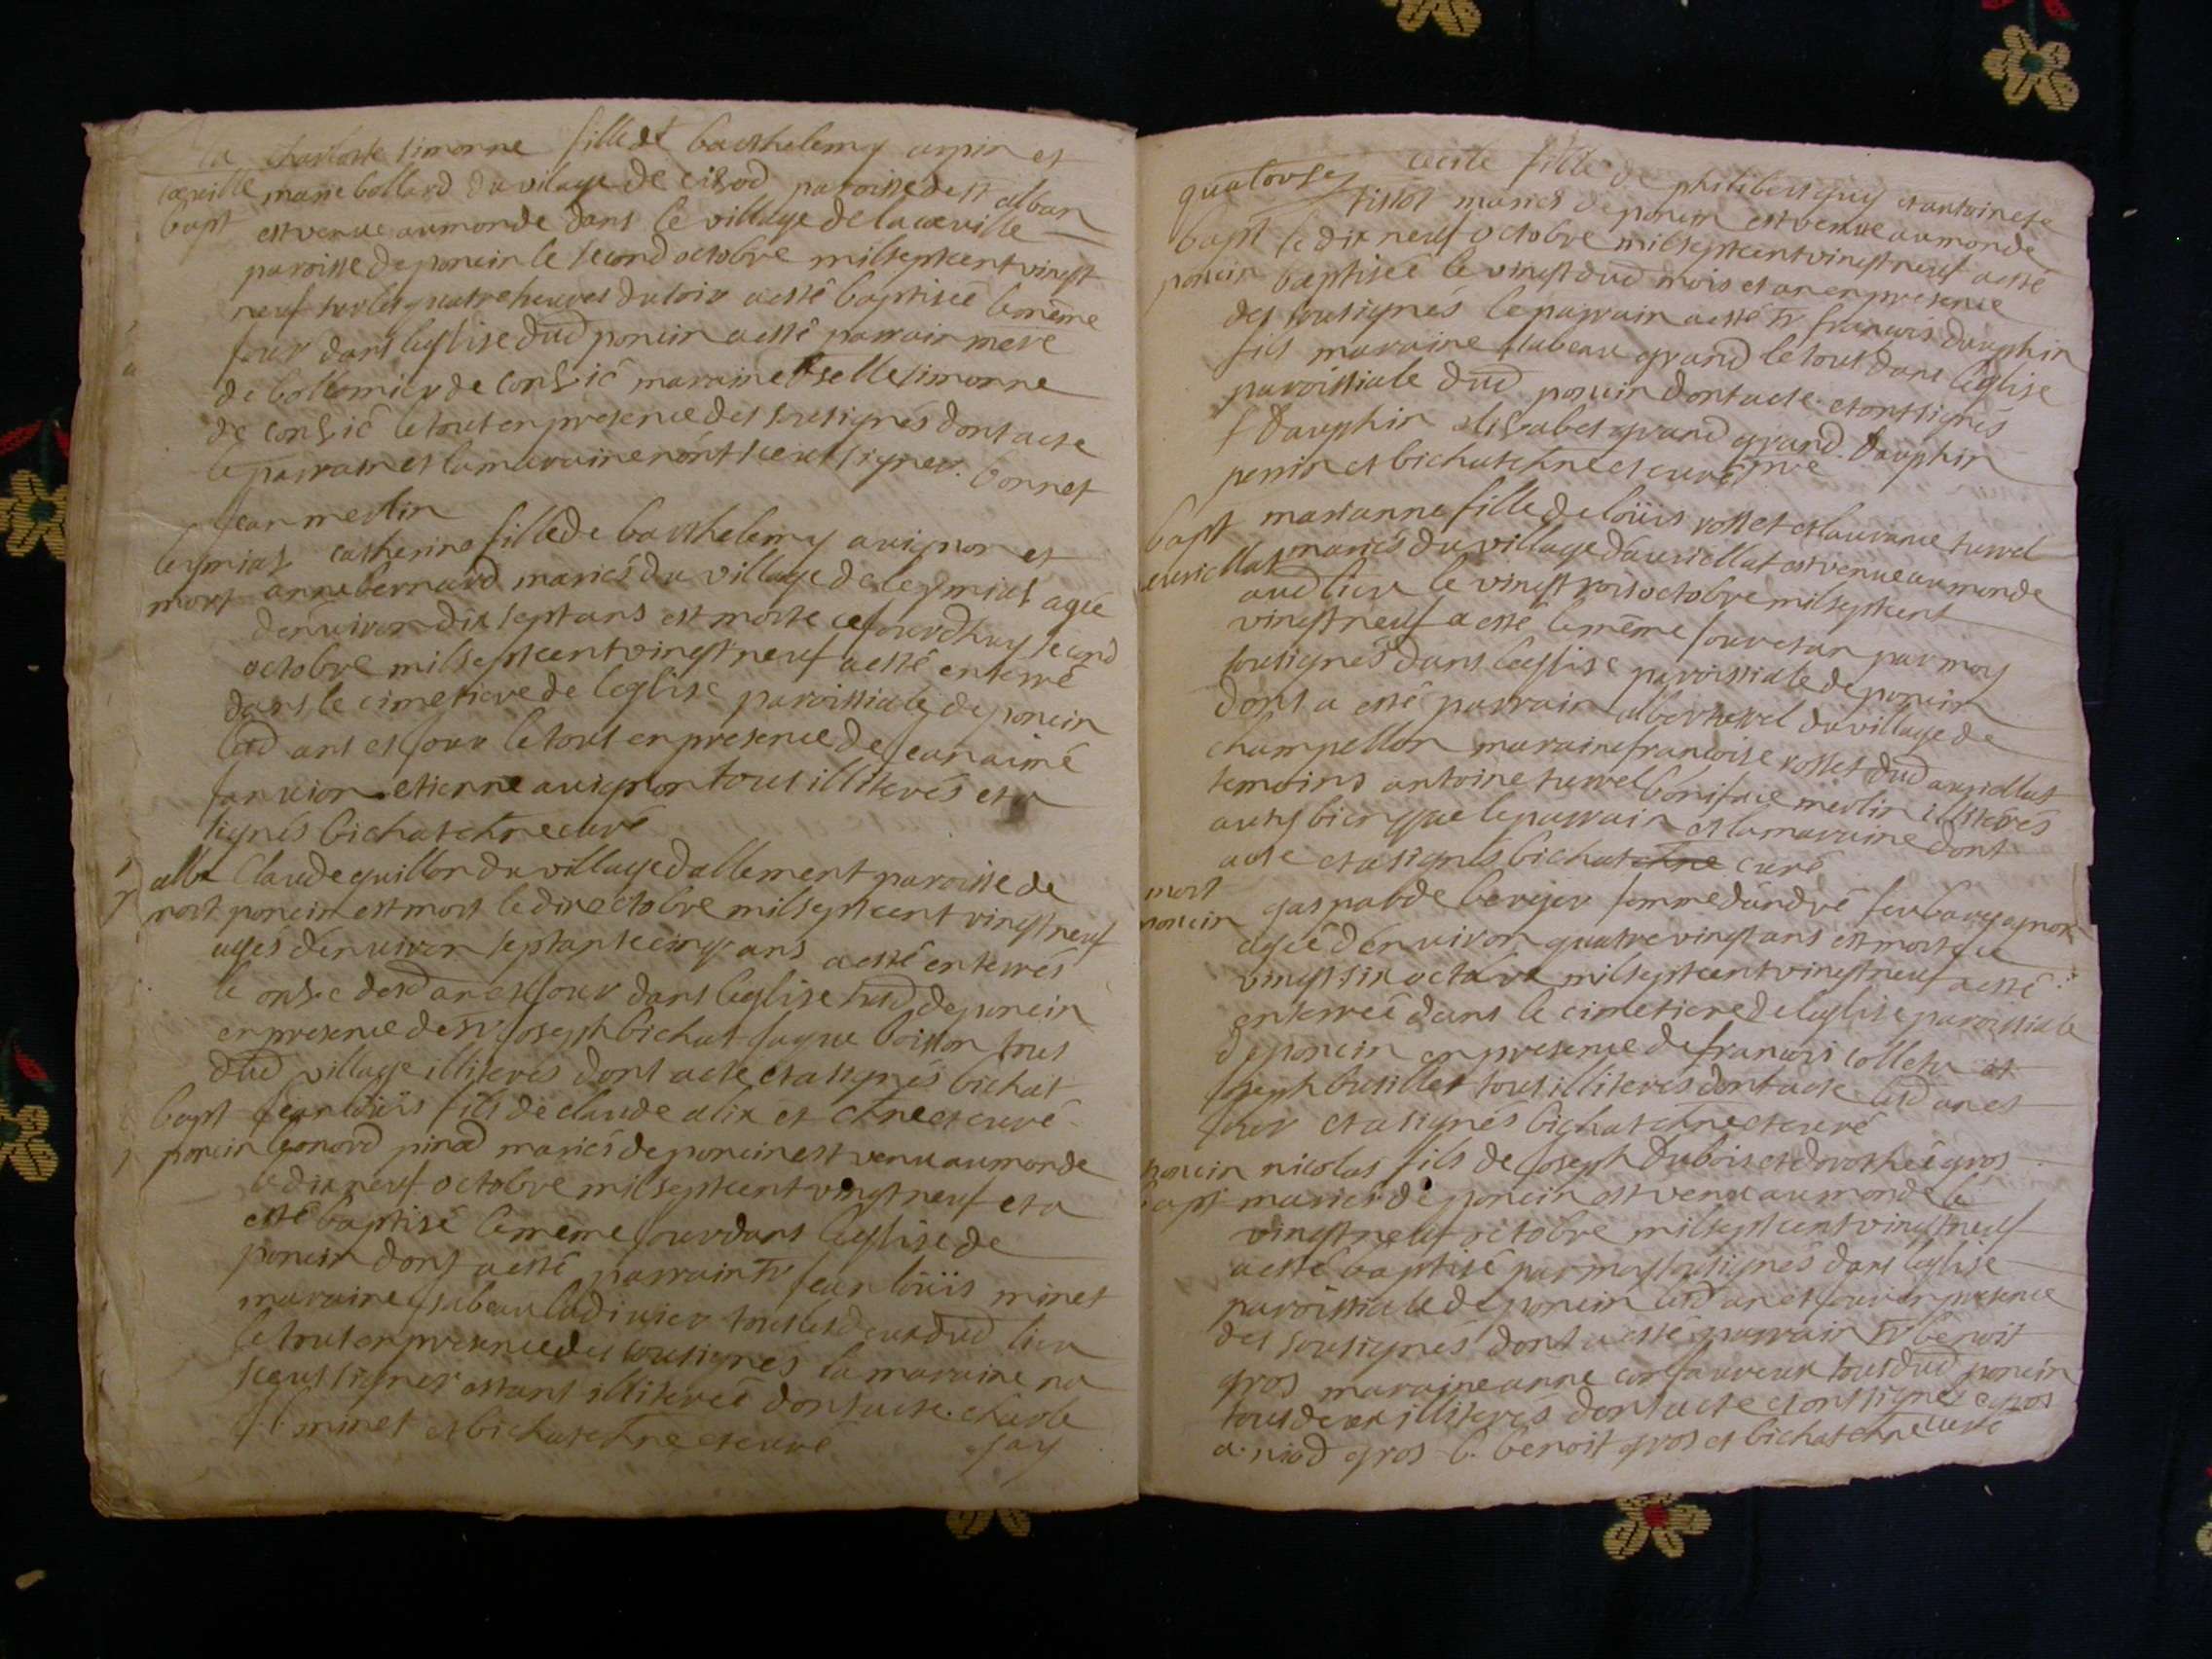 la charlotte simonne fille de barthelemy arpin et
cœuille marie bollard du vilage de eisod paroisse de st alban
bapt est venue au monde dans le village de la cœuille
paroisse de poncin le second octobre mil sept cent vingt
neuf sur les quatre heures du soir a esté baptisée le même
jour dans leglise dud poncin a esté parrain
de maraine simonne
de le tout en presence des sousignés dont acte
le parrain et la maraine n'ont sceut signer. bonnet
jean merlin
leymiat catherine fille de barthelemy auignon et
mort anne bernard mariés du village de leymiat agée
denuiron dix sept ans est morte ce jourdhuy second
octobre mil sept cent vingt neuf a esté enterré
dans le cimetiere de leglise paroissiale de poncin
led ans et jour le tout en presence de jean aimé
januion etienne auignon tous illiterés et a
signés bichat chne curé
alle Claude guillon du village dallement paroisse de
mort poncin est mort le dix octobre mil sept cent vingt neuf
agés denuiron septante cinq ans a esté enterrés
le onze desd an et jour dans leglise de poncin
en presence de sr joseph bichat jaque boisson tous
dud village illiterés dont acte et a signés bichat
bapt jean loüis fils de claude alix et chne et curé
poncin leonard mariés de poncin est venu au monde
le dix neuf octobre mil sept cent vingt neuf et a
esté baptisé le même jour dans leglise de
poncin dont a esté parrain sr jean loüis minet
maraine ysabeau tous les deux dud lieu
le tout en presence des sousignés la maraine na
sceut signer estant illiterée dont acte. charle
j l minet et bichat chne et curé jay
quatorse cecile fille de philibert guy et antoinete
tissot mariés de poncin est venue au monde
bapt le dix neuf octobre mil sept cent vingt neuf a esté
poncin baptisée le vingt dud mois et an en presence
des sousignés le parrain a esté sr francois dauphin
fils maraine ysabeau grand le tout dans leglise
paroissiale dud poncin dont acte et ont signés
f dauphin elisabet grand grand dauphin
perrin et bichat chne et curé
bapt marianne fille de loüis rosset et laurance turrel
mariés du village dauriellat est venue au monde
aud lieu le vingt trois octobre mil sept cent
vingt neuf a esté le même jour et an par moy
sousignés dans leglise paroissiale de poncin
dont a esté parrain albert turrel du village de
champellon maraine francoise rosset dud auriellat
temoins antoine turrel boniface merlin illiterés
aussy bien que le parrain et la maraine dont
acte et a signés bichat chne curé
mort
poncin gasparde berger femme d'andré
agée denuiron quatre vingt ans est morte le
vingt six octobre mil sept cent vingt neuf a esté
enterrée dans le cimetiere de leglise paroissiale
de poncin en presence de francois collet et
joseph tous illiterés dont acte lesd an et
jour et a signés bichat chne et curé
poncin nicolas fils de joseph dubois et dorothée gros
bapt mariés de poncin est venu au monde le
vingt neuf octobre mil sept cent vingt neuf
a esté baptisé par moy sousignés dans leglise
paroissiale de poncin lesd an et jour en presence
des sousignés dont a esté parrain sr benoit
gros maraine anne tous dud poncin
tous deux illiterés dont acte et ont signés gros
a. niod gros b. benoit gros et bichat chne curé